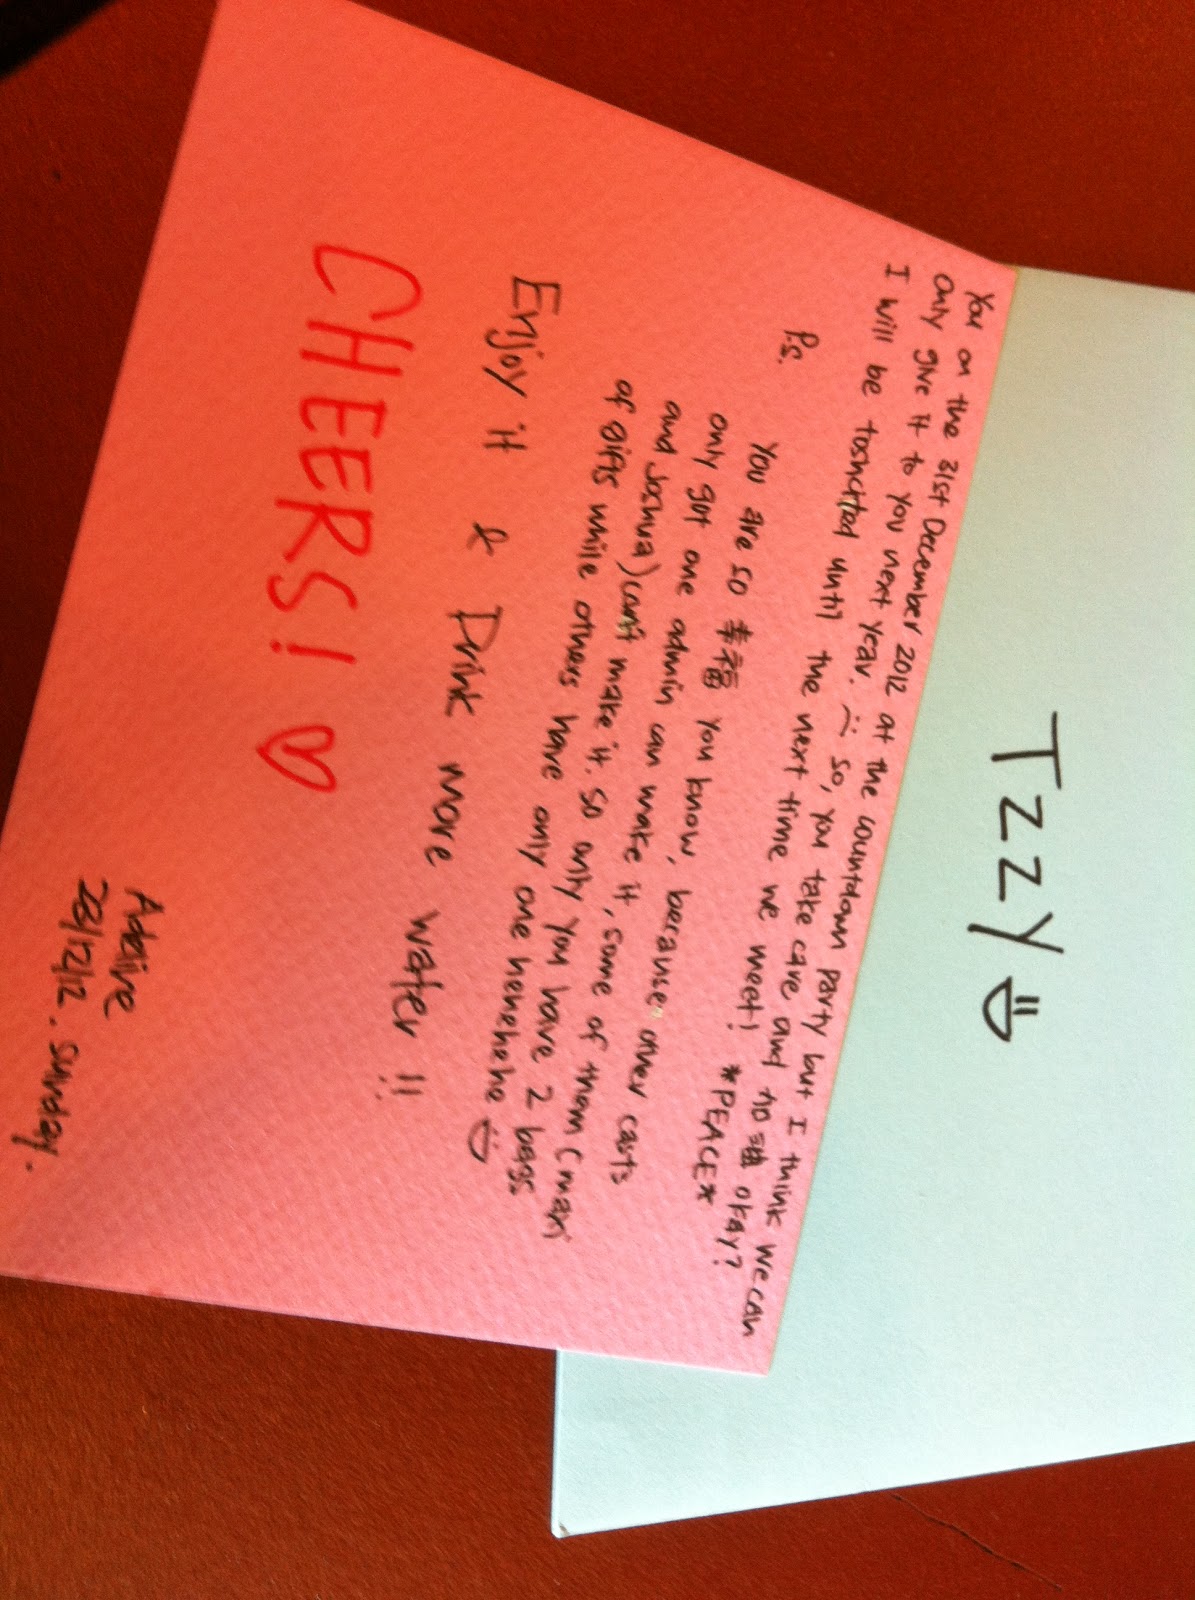 Tzzy
You on the 31st December 2012 at the countdown party but I think we can
only give it to you next year. So, you take care and 加油 okay?
I will be until the next time we meet! *PEACE*
P.S.
You are so 幸福 you know, because other casts
only got one admin can make it, some of them (
and Joshua) can't make it. So only you have 2 bags
of gifts while others have only one hehehe
Enjoy it & Drink more water!!
CHEERS! ♡
28/12/12. Sunday.